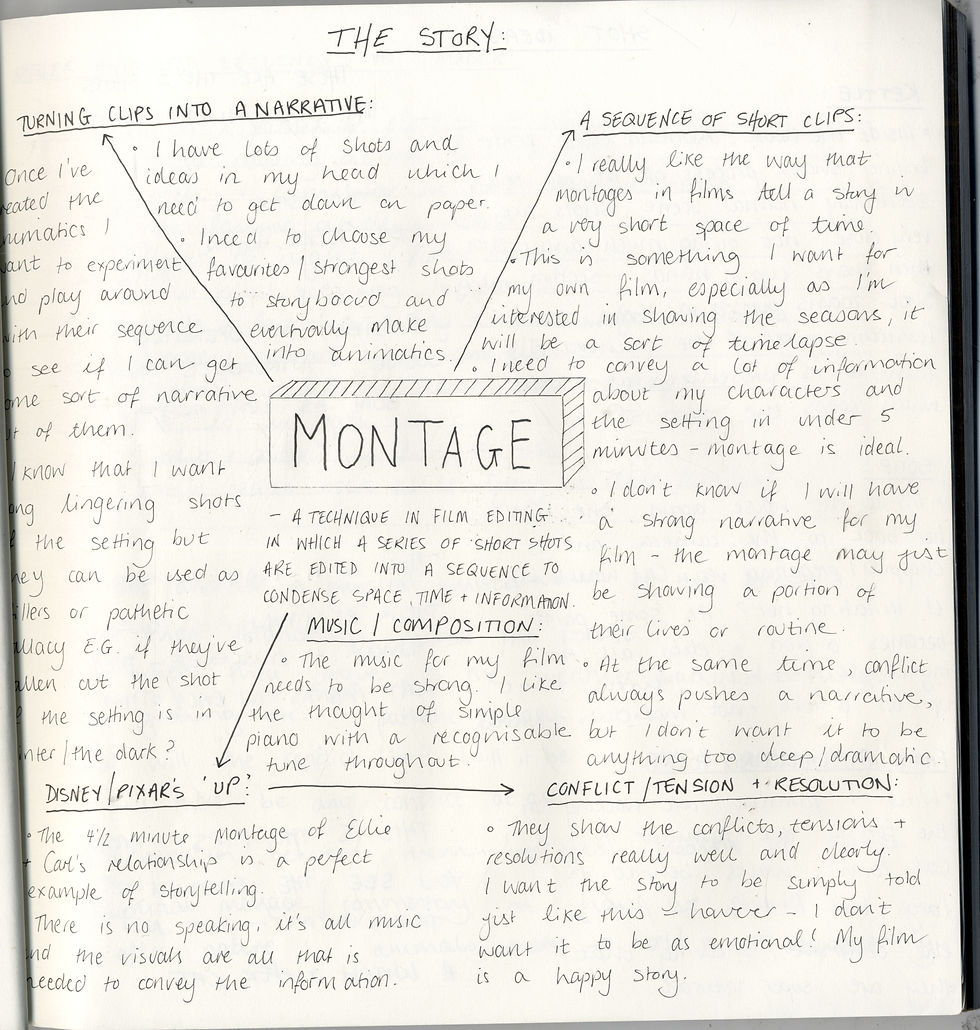 THE STORY:
TURNING CLIPS INTO A NARRATIVE:
• I have lots of shots and
ideas in my head which I
need to get down on paper.
• I need to choose my
favourites / strongest shots
to storyboard and
eventually make
into animatics.
Once I've
eated the
nimatics I
ant to experiment
nd play around
ith their sequence
o see if I can get
ome sort of narrative
t of them.
I know that I want
ng lingering shots
f the setting but
hey can be used as
illers or pathetic
allacy E.G. if they've
allen out the shot
f the setting is in
nter / the dark?
A SEQUENCE OF SHORT CLIPS:
• I really like the way that
montages in films tell a story in
a very short space of time.
• This is something I want for
my own film, especially as I'm
interested in showing the seasons, it
will be a sort of timelapse.
• I need to convey a lot of information
about my characters and
the setting in under 5
minutes - montage is ideal.
• I don't know if I will have
a strong narrative for my
film - the montage may just
be showing a portion of
their lives or routine.
• At the same time, conflict
always pushes a narrative,
but I don't want it to be
anything too deep/dramatic.
MONTAGE
- A TECHNIQUE IN FILM EDITING
IN WHICH A SERIES OF SHORT SHOTS
ARE EDITED INTO A SEQUENCE TO
CONDENSE SPACE, TIME + INFORMATION.
MUSIC / COMPOSITION:
• The music for my film
needs to be strong. I like
the thought of simple
piano with a recognisable
tune throughout.
DISNEY/PIXAR'S 'UP':
• The 4 1/2 minute montage of Ellie
+ Carl's relationship is a perfect
example of storytelling.
There is no speaking, it's all music
and the visuals are all that is
needed to convey the information.
CONFLICT/TENSION + RESOLUTION:
• They show the conflicts, tensions +
resolutions really well and clearly.
I want the story to be simply told
just like this - however - I don't
want it to be as emotional! My film
is a happy story.